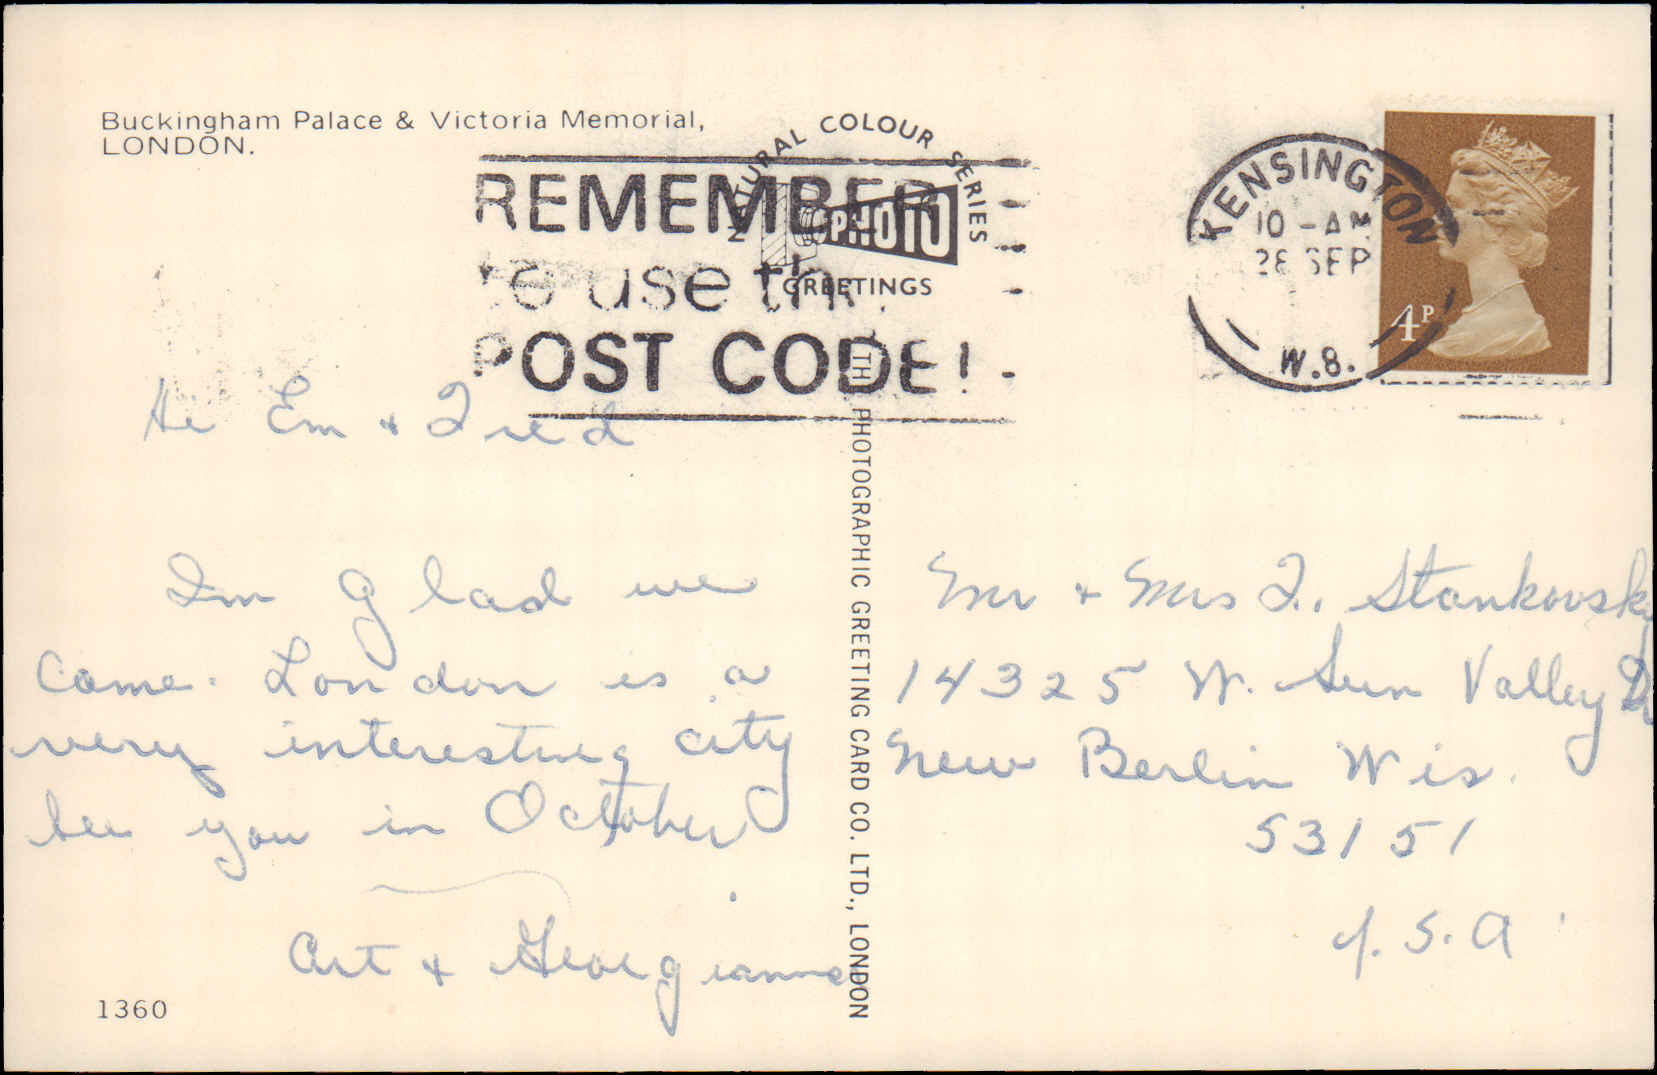 Buckingham Palace & Victoria Memorial,
LONDON.
NATURAL COLOUR SERIES
PHOTO
GREETINGS
REMEMBER
to use the
POST CODE!
KENSINGTON
10 - AM
28 SEP
W.8.
4P
Hi Em + Fred
Im glad we
came. London is a
very interesting city
See you in October
Art + Georgianna
1360
THE PHOTOGRAPHIC GREETING CARD CO. LTD., LONDON
Mr + Mrs F. Stankovsky
14325 W. Sun Valley Dr
New Berlin Wis.
53151
U.S.A